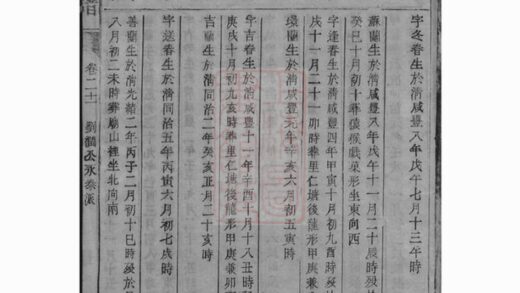 字冬春生於清咸豐八年戊午七月十三午時
蕭蘭生於清咸豐八年戊午十一月二十辰時歿於
癸巳十月初十葬獲猴戲菓形坐東向西
字逢春生於清咸豐四年甲寅十月初九酉時歿於
戌十一月二十一卯時葬里仁塘後龍形甲庚兼
環蘭生於清咸豐元年辛亥六月初五寅時
字吉春生於清咸豐十一年辛酉十月十八丑時歿
庚戌十月初九亥時葬里仁塘後龍形甲庚兼卯
吉蘭生於清同治二年癸亥正月二十亥時
字送春生於清同治五年丙寅六月初七戌時
善蘭生於清光緒二年丙子二月初十巳時歿於
八月初二未時葬廟山裡坐北向南
卷二十一 劉 公永泰派